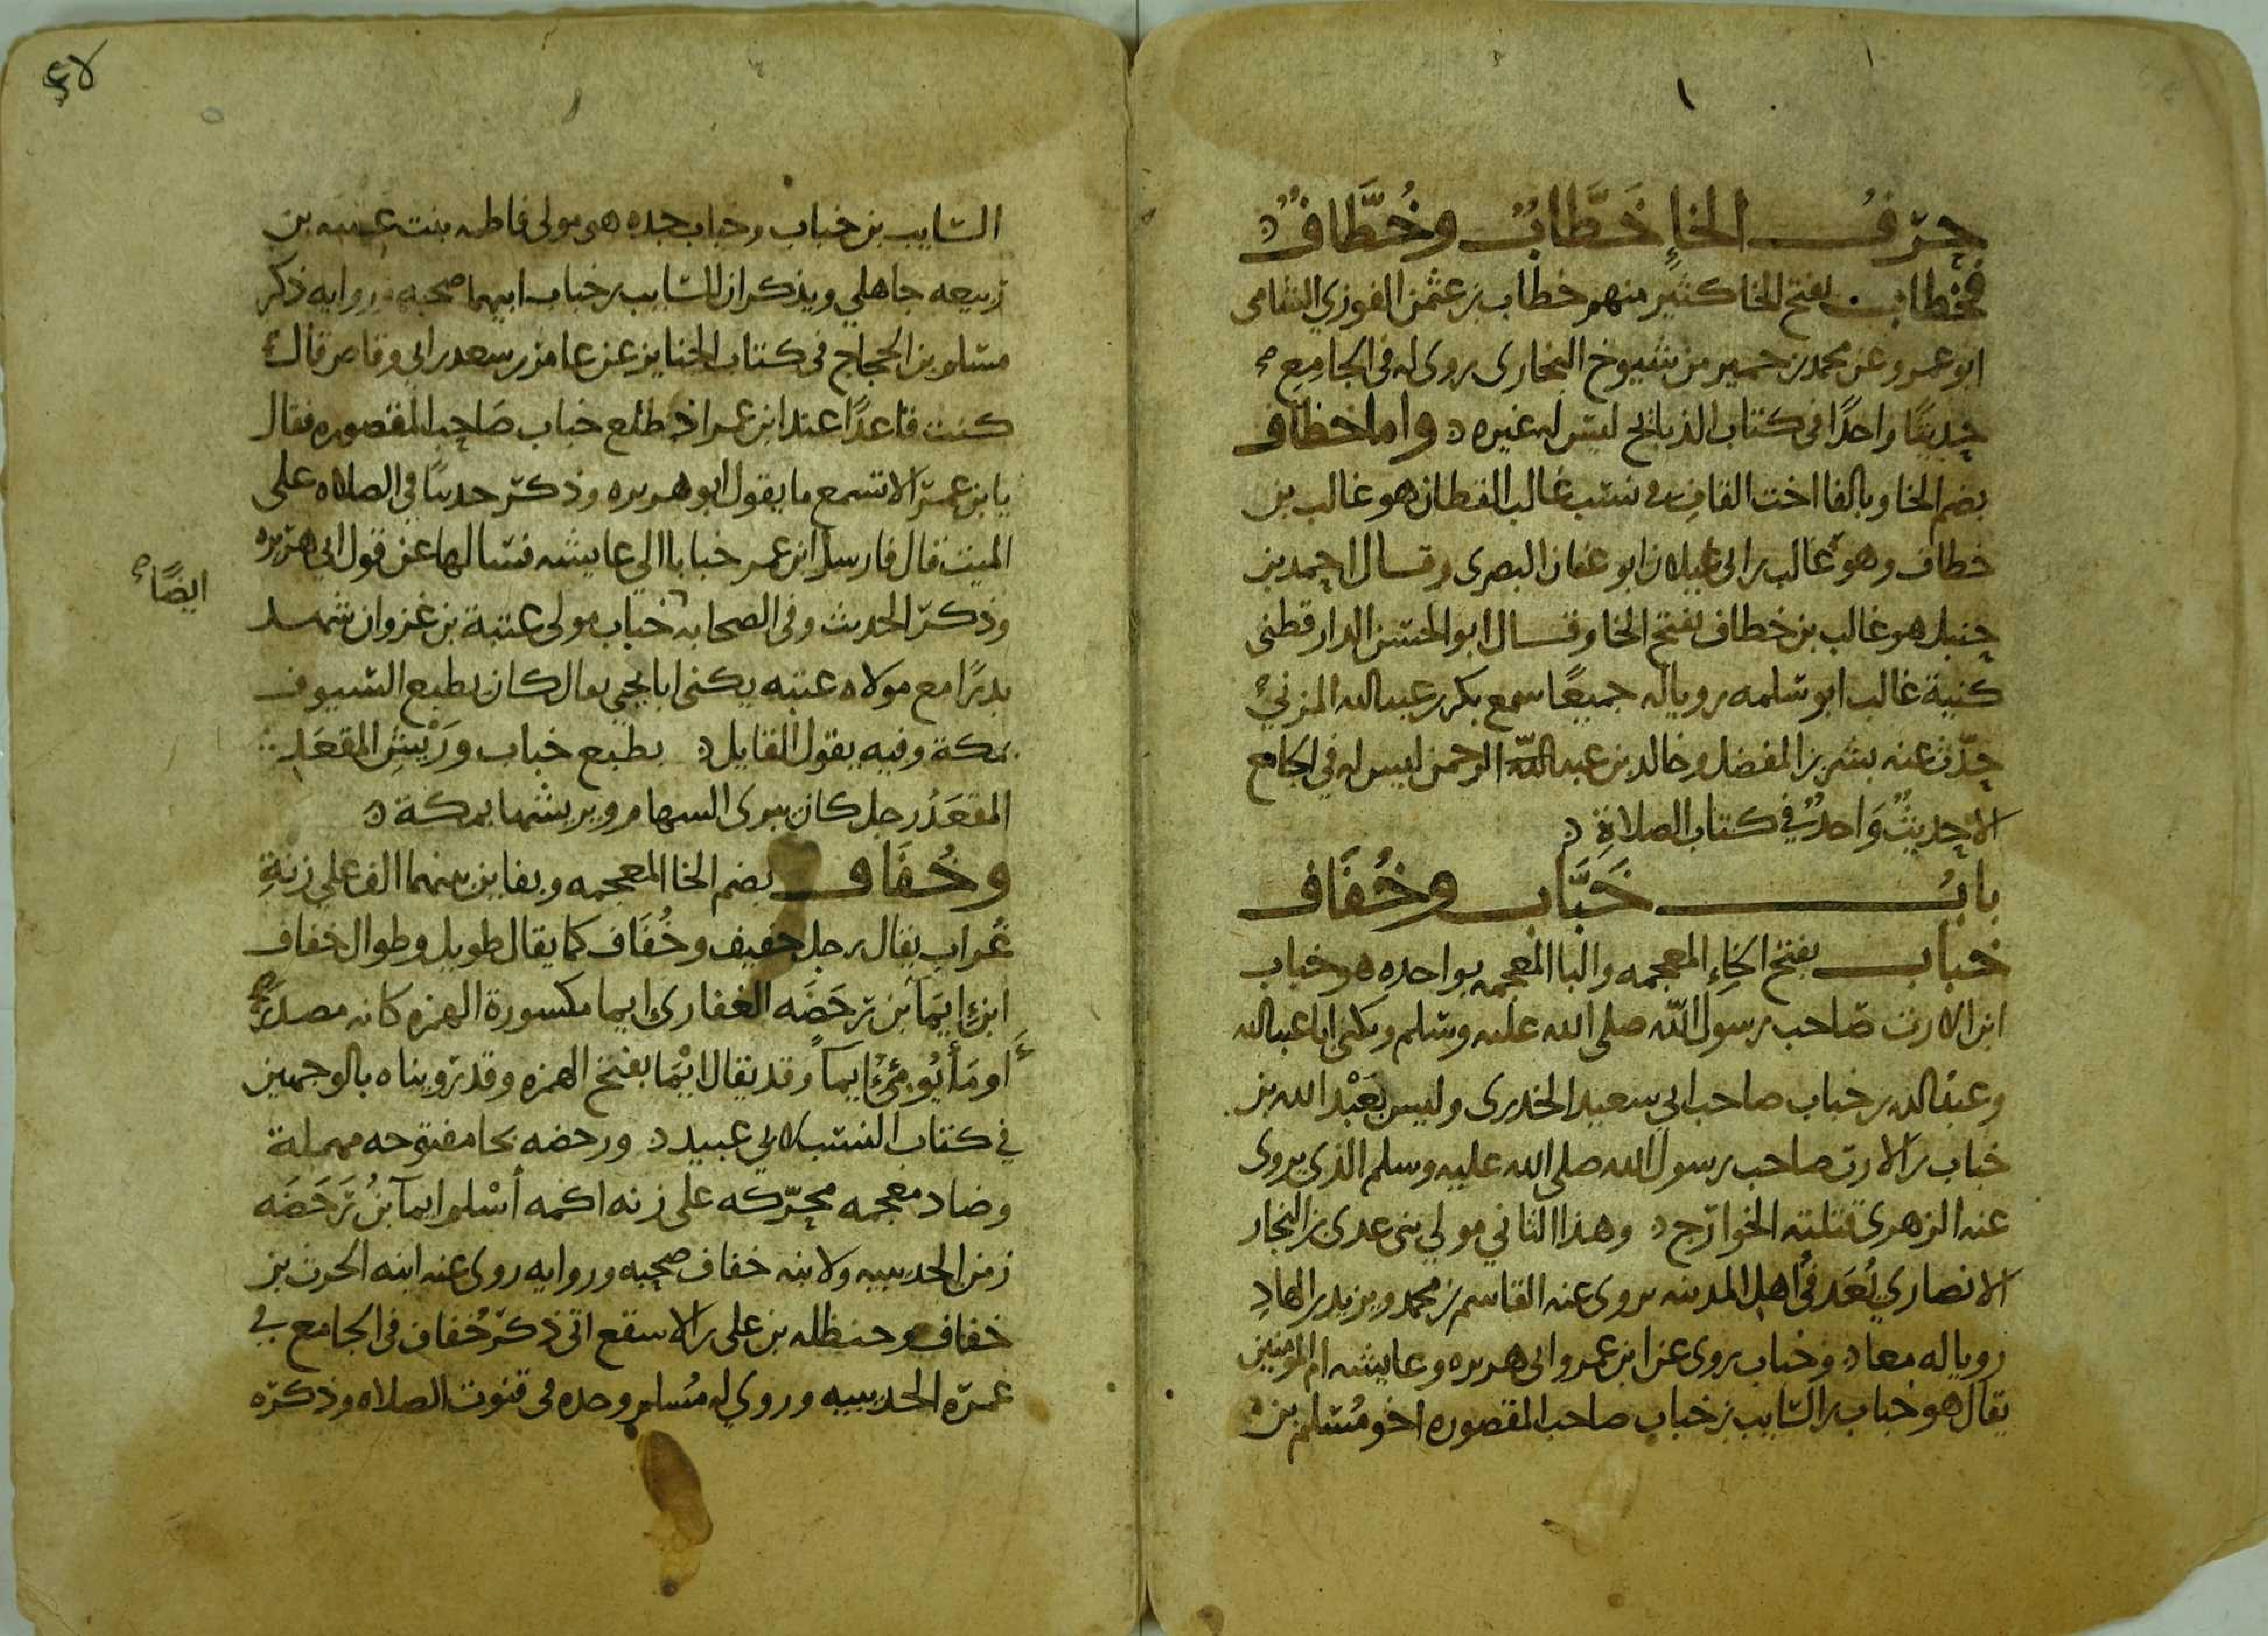 حرف الخاء خَطَّابٌ وخُطَّافٌ
فخطاب بفتح الخا كثير منهم خطاب بن عثمن الفوزي الشامي
ابو عمرو عن محمد بن حمير من شيوخ البخاري روى له في الجامع
حديثا واحدًا في كتاب الذبائح ليس له غيره واما خطاف
بضم الخا وبالفا اخت القاف في نسب غالب القطان هو غالب بن
خطاف وهو غالب بن ابي غيلان ابو عفان البصري وقال احمد بن
حنبل هو غالب بن خطاف بفتح الخا وقال ابو الحسن الدارقطني
كنية غالب ابو سلمه رويا له جميعًا سمع بكر بن عبد الله المزني
حدّث عنه بشر بن المفضل وخالد بن عبد الرحمن ليس له في الجامع
الا حديثٌ وَاحدٌ في كتاب الصلاةِ
بابُ خَبَّاب وخُفَاف
خباب بفتح الخاءِ المعجمه والبا المعجمه بواحده هو خباب
ابن الارت صاحب رسول الله صلى الله عليه وسلم ويكنى ابا عبد الله
وعبد الله بن خباب صاحب ابي سعيد الخدري وليس بعَبْد الله بن
خباب بن الارت صاحب رسول الله صلى الله عليه وسلم الذي يروى
عنه الزهري قتلته الخوارج وهذا الثاني مولي بني عدي بن النجار
الانصاري يُعَد في اهل المدينه يروى عنه القاسم بن محمد ويزيد بن الهادِ
رويا له معا وخباب يروى عن ابن عمر وابي هريره وعايشه ام المومنين
يقال هو خباب بن السايب بن خباب صاحب المقصوره اخو مُسلم بن
السايب بن خباب وخباب جده هو مولى فاطمه بنت عتبه بن
ربيعه جاهلي ويذكر ان للسايب بن خباب ابيهما صحبه وروايه ذكر
مسلم بن الحجاج في كتاب الجنايز عن عامر بن سعد بن ابي وقاص قال
كنت قاعدًا عند ابن عمر اذ طلع خباب صَاحب المقصوره فقال
يا بن عمر الا تسمع ما يقول ابو هريره وذكر حديثًا في الصلاه على
الميت قال فارسل ابن عمر خبابا الى عايشه فسالها عن قول ابي هريره
وذكر الحديث وفي الصحابه خباب مولى عتبة بن غزوان شهد
ايضًا
بدرًا مع مولاه عتبه يكنى ابا يحيى يقال كان يطبع السيوف
بمكة وفيه يقول القايل يطبع خباب وَرَيْشِ المقعَدِ
المقعَدُ رجل كان يبرى السهام ويريشها بمكة
وخُفَاف بضم الخا المعجمه وبفاين بينهما الف علي زنةِ
غُراب يقال رجل خفيف وخُفَاف كما يقال طويل وطوال خفاف
ابن ايمَآ بن رَحَضَه الغفاري ايما مكسورة الهمزه كانه مصدر
اومَأ يُومئ ايماً وقد يقال ايْمَا بفتح الهمزه وقد رويناه بالوجهين
في كتاب النسب لابي عبيد ورحضه بحا مفتوحه مهملة
وضاد معجمه محرّكه على زنه اكمه أسْلم ايمآ بنُ رَحَضَه
زمن الحديبيه ولابنه خفاف صحبه وروايه روى عنه ابنه الحرث بن
خفاف وحنظله بن علي بن الاسقع اتى ذكر خُفاف في الجامع في
عمرة الحديبيه وروي له مُسلم وحده في قنوت الصلاه وذكره